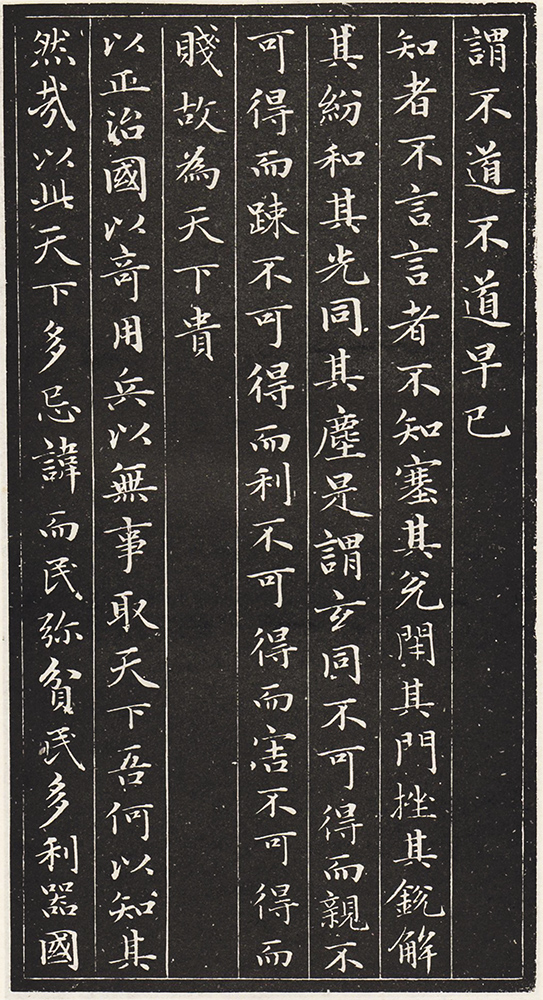 謂不道不道早已
知者不言言者不知塞其兌閇其門挫其銳解
其紛和其光同其塵是謂玄同不可得而親不
可得而踈不可得而利不可得而害不可得而
賤故為天下貴
以正治國以竒用兵以無事取天下吾何以知其
然哉以此天下多忌諱而民弥貧民多利器國